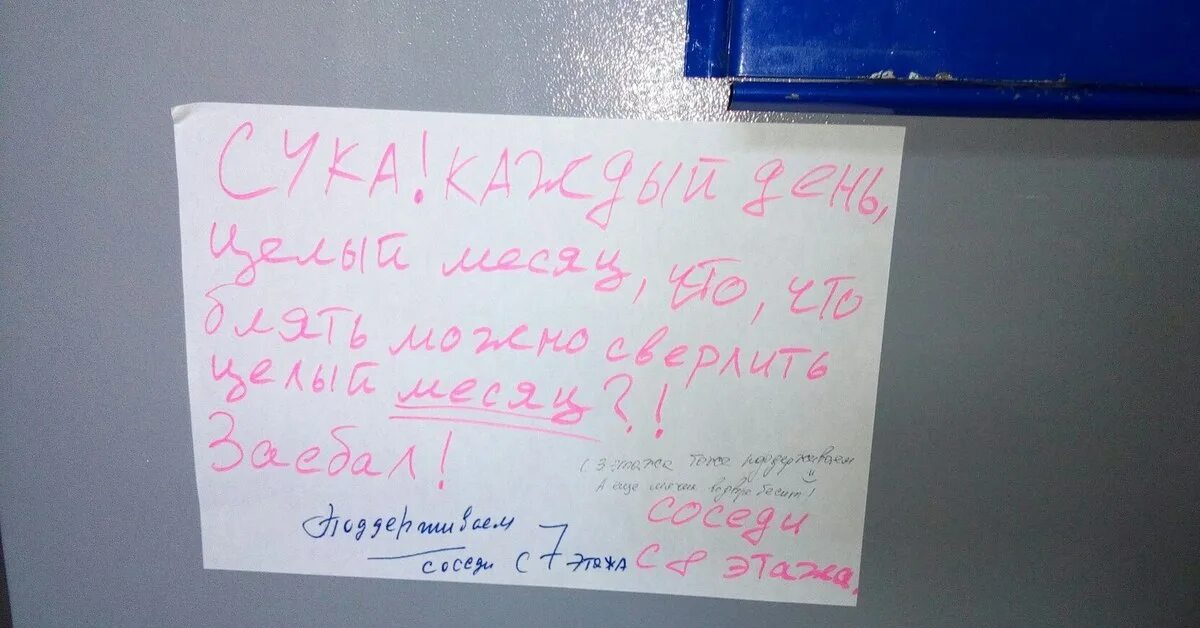 СУКА! КАЖДЫЙ ДЕНЬ,
целый месяц, что, что
блять можно сверлить
целый месяц?!
Заебал!
С 3 этажа тоже поддерживаем
А еще мячик во дворе бесит!
Поддерживаем
соседи с 7 этажа
соседи
с 8 этажа.